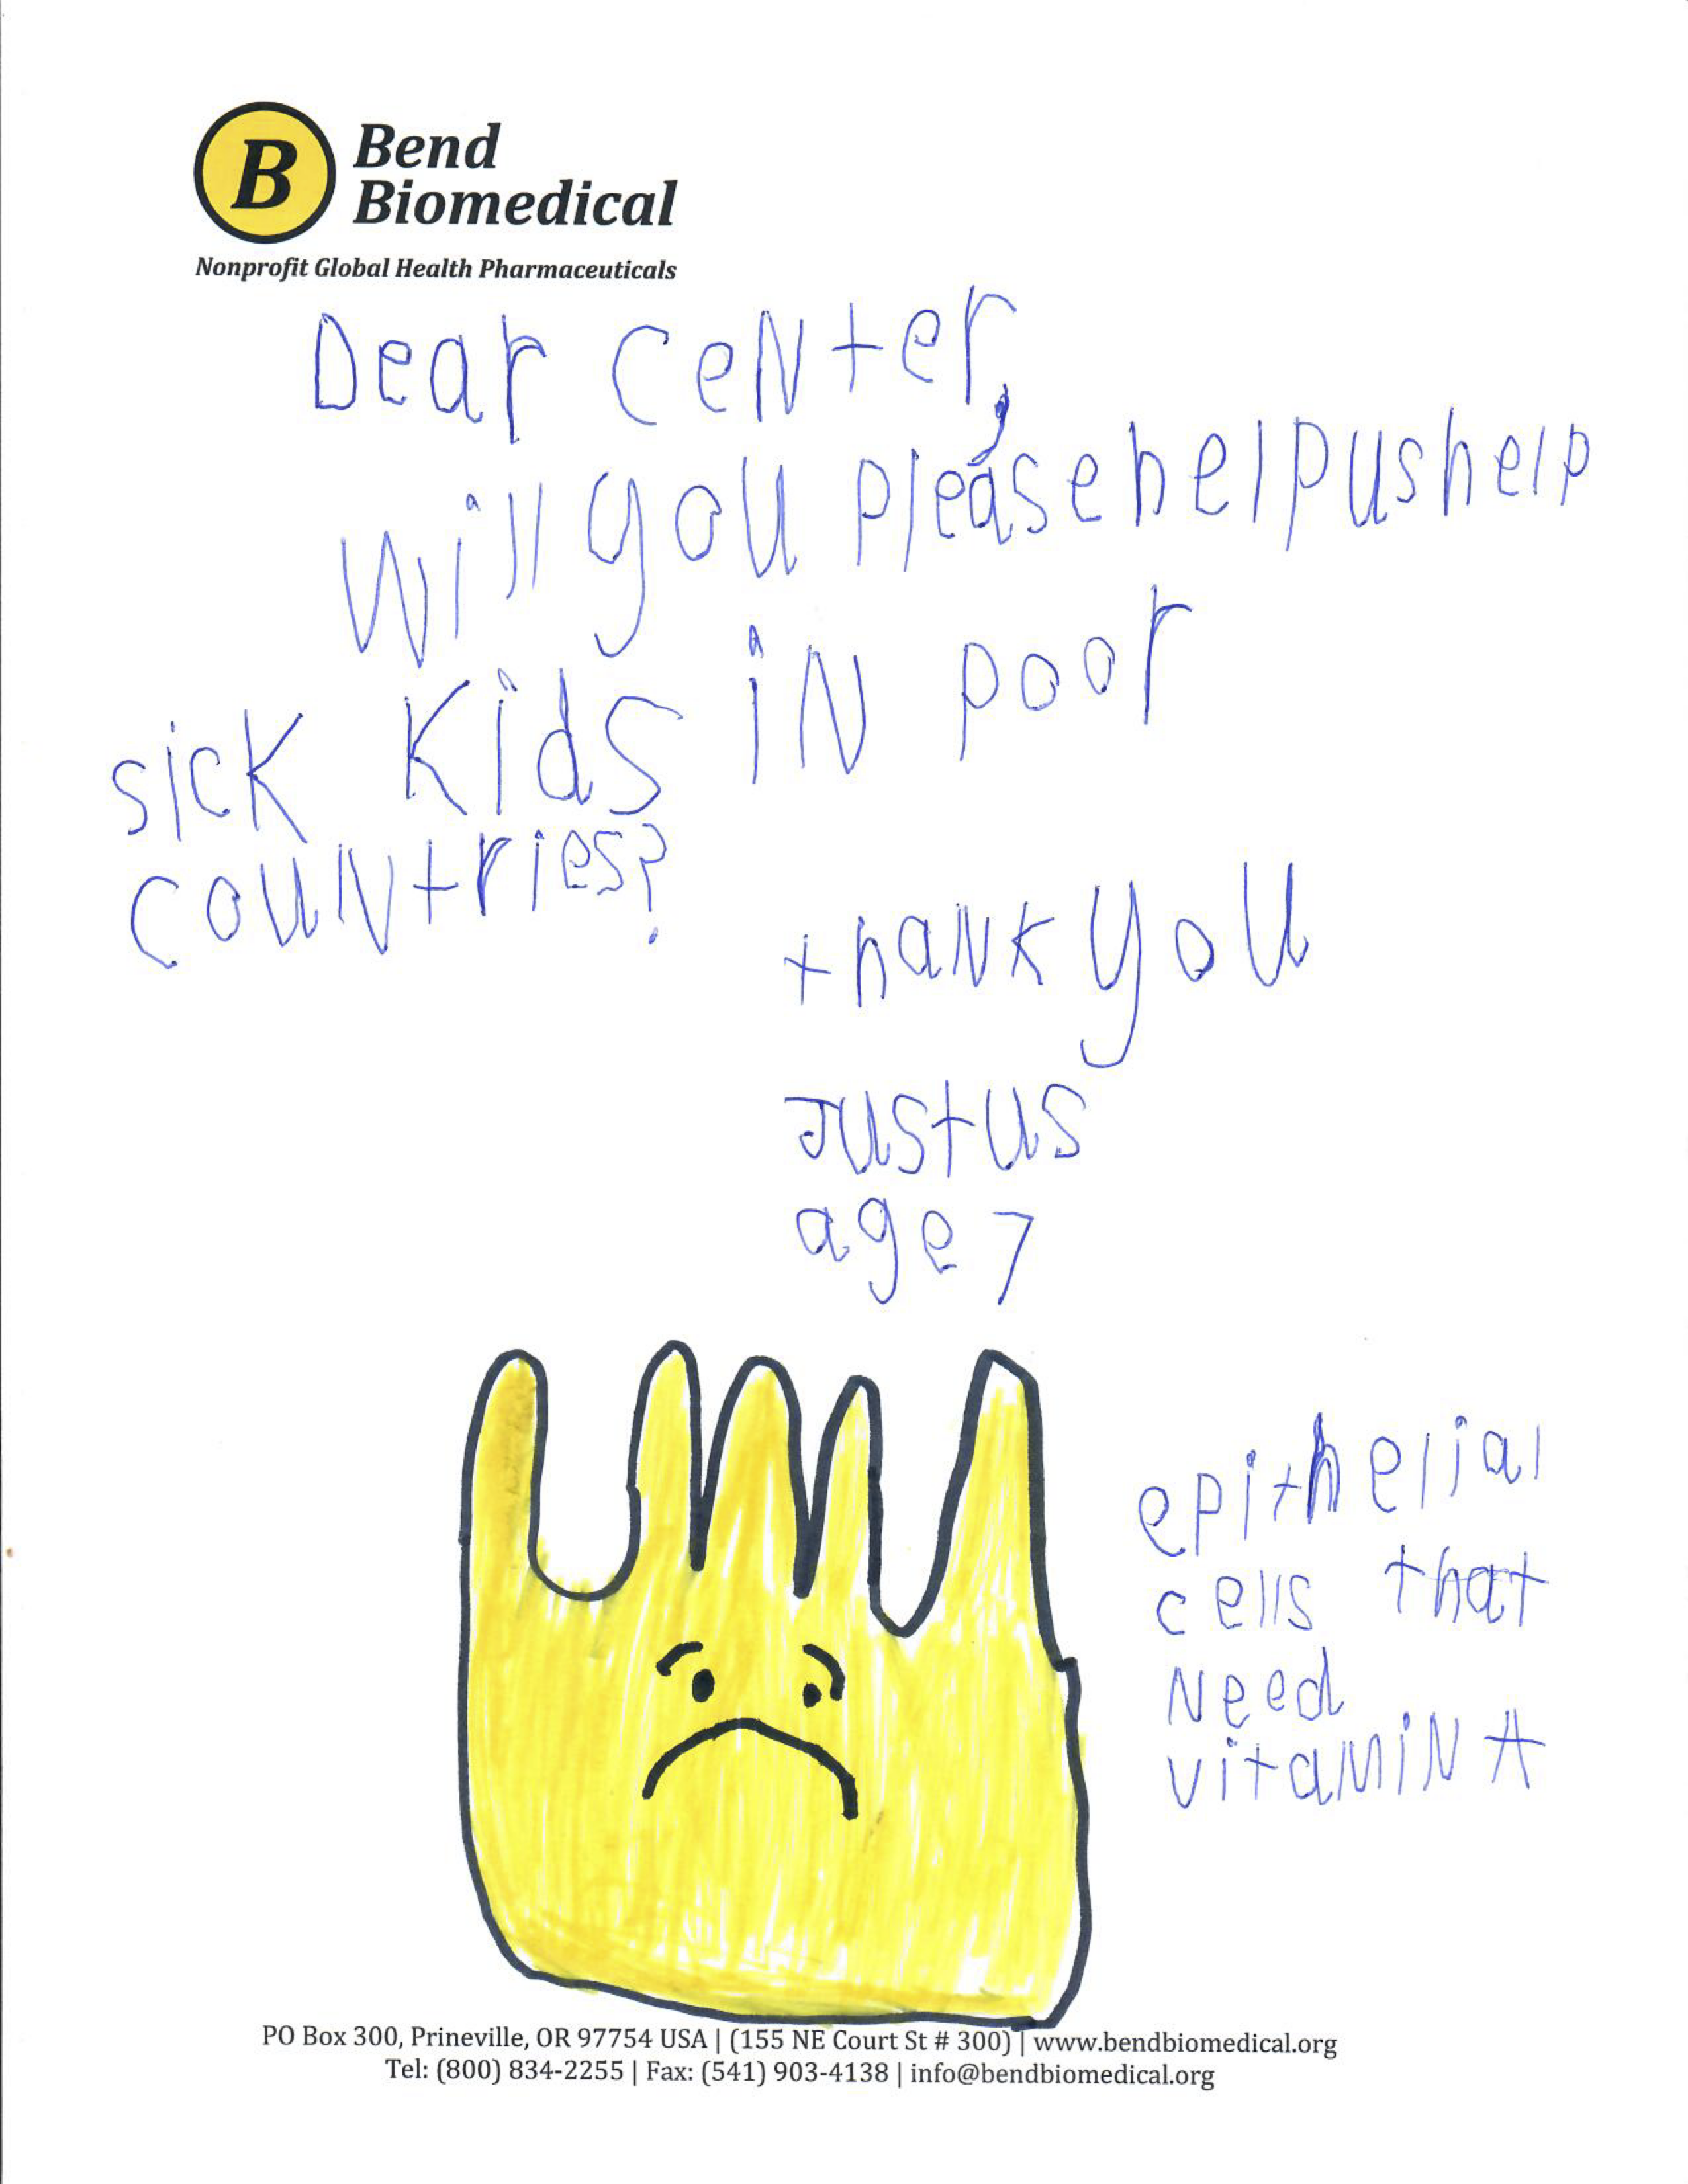 B
Bend
Biomedical
Nonprofit Global Health Pharmaceuticals
Dear CeNter,
will you please help us help
sick Kids iN poor
couNtries?
thaNk you
Justus
age 7
epithelial
cells that
Need
vitamiN A
PO Box 300, Prineville, OR 97754 USA | (155 NE Court St # 300) | www.bendbiomedical.org
Tel: (800) 834-2255 | Fax: (541) 903-4138 | info@bendbiomedical.org